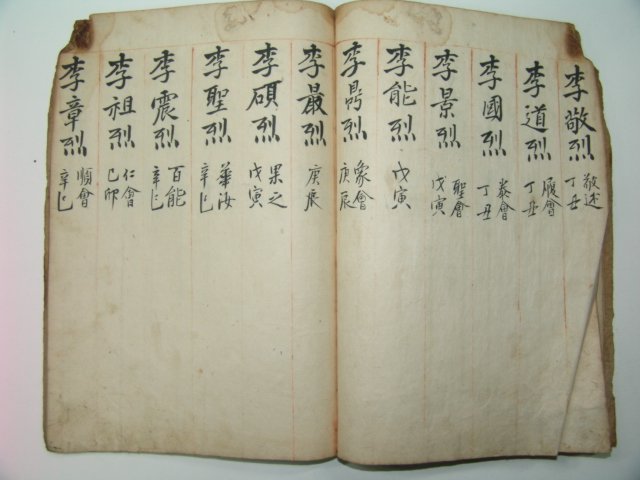 李敬烈
敬述
丁丑
李道烈
履會
丁丑
李國烈
泰會
丁丑
李景烈
聖會
戊寅
李能烈
戊寅
李烈
象會
庚辰
李最烈
庚辰
李碩烈
果之
戊寅
李聖烈
華汝
辛巳
李震烈
百能
辛巳
李祖烈
仁會
己卯
李章烈
順會
辛巳